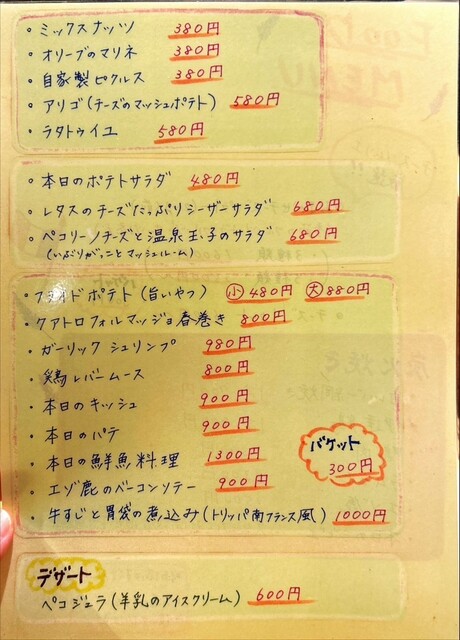 ・ミックスナッツ 380円
・オリーブのマリネ 380円
・自家製ピクルス 380円
・アリゴ(チーズのマッシュポテト) 580円
・ラタトゥイユ 580円
・本日のポテトサラダ 480円
・レタスのチーズたっぷりシーザーサラダ 680円
・ペコリーノチーズと温泉玉子のサラダ 680円
(いぶりがっことマッシュルーム)
・フライドポテト(旨いやつ) 小480円 大880円
・クアトロフォルマッジョ春巻き 800円
・ガーリックシュリンプ 980円
・鶏レバームース 800円
・本日のキッシュ 900円
・本日のパテ 900円
・本日の鮮魚料理 1300円
・エゾ鹿のベーコンソテー 900円
・牛すじと胃袋の煮込み(トリッパ南フランス風) 1000円
バケット
300円
デザート
ペコジェラ(羊乳のアイスクリーム) 600円